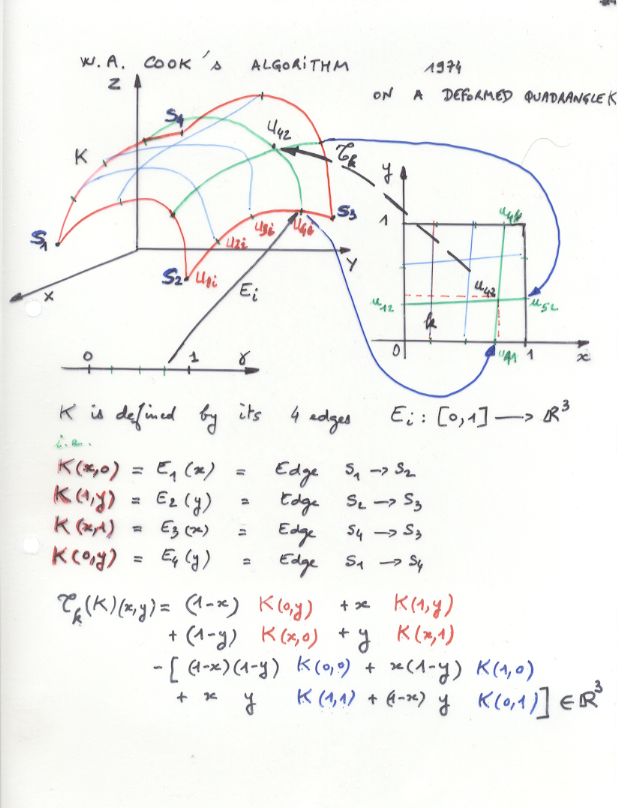 W.A. COOK's ALGORITHM 1974
ON A DEFORMED QUADRANGLE K
Z
S4
u42
K
y
1
S1
S3
S2
u1i
u2i
u3i
u4i
Y
X
Ei
u44
u12
u43
u52
k
0
u41
1
x
0 1 γ
K is defined by its 4 edges Ei : [0,1] → ℝ³
i.e.
K(x,0) = E1(x) = Edge S1 → S2
K(1,y) = E2(y) = Edge S2 → S3
K(x,1) = E3(x) = Edge S4 → S3
K(0,y) = E4(y) = Edge S1 → S4
(K)(x,y) = (1-x) K(0,y) + x K(1,y)
+ (1-y) K(x,0) + y K(x,1)
- [ (1-x)(1-y) K(0,0) + x(1-y) K(1,0)
+ x y K(1,1) + (1-x) y K(0,1) ] ∈ ℝ³